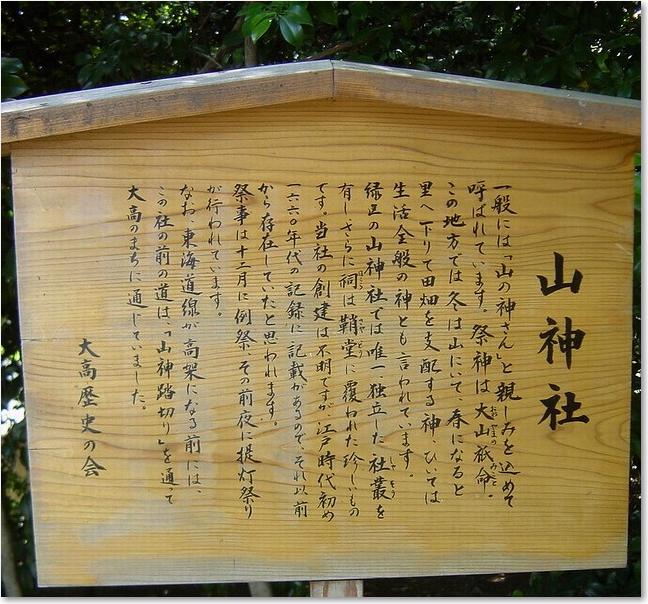 山神社
一般には「山の神さん」と親しみを込めて
呼ばれています。祭神は大山祇命。
この地方では冬は山にいて、春になると
里へ下りて田畑を支配する神、ひいては
生活全般の神とも言われています。
緑区の山神社では唯一独立した社叢を
有し、さらに祠は鞘堂に覆われた珍しいもの
です。当社の創建は不明ですが江戸時代初め
一六六〇年代の記録に記載があるので、それ以前
から存在していたと思われます。
祭事は十二月に例祭、その前夜に提灯祭り
が行われています。
なお、東海道線が高架になる前には、
この社の前の道は、「山神踏切り」を通って
大高のまちに通じていました。
大高歴史の会